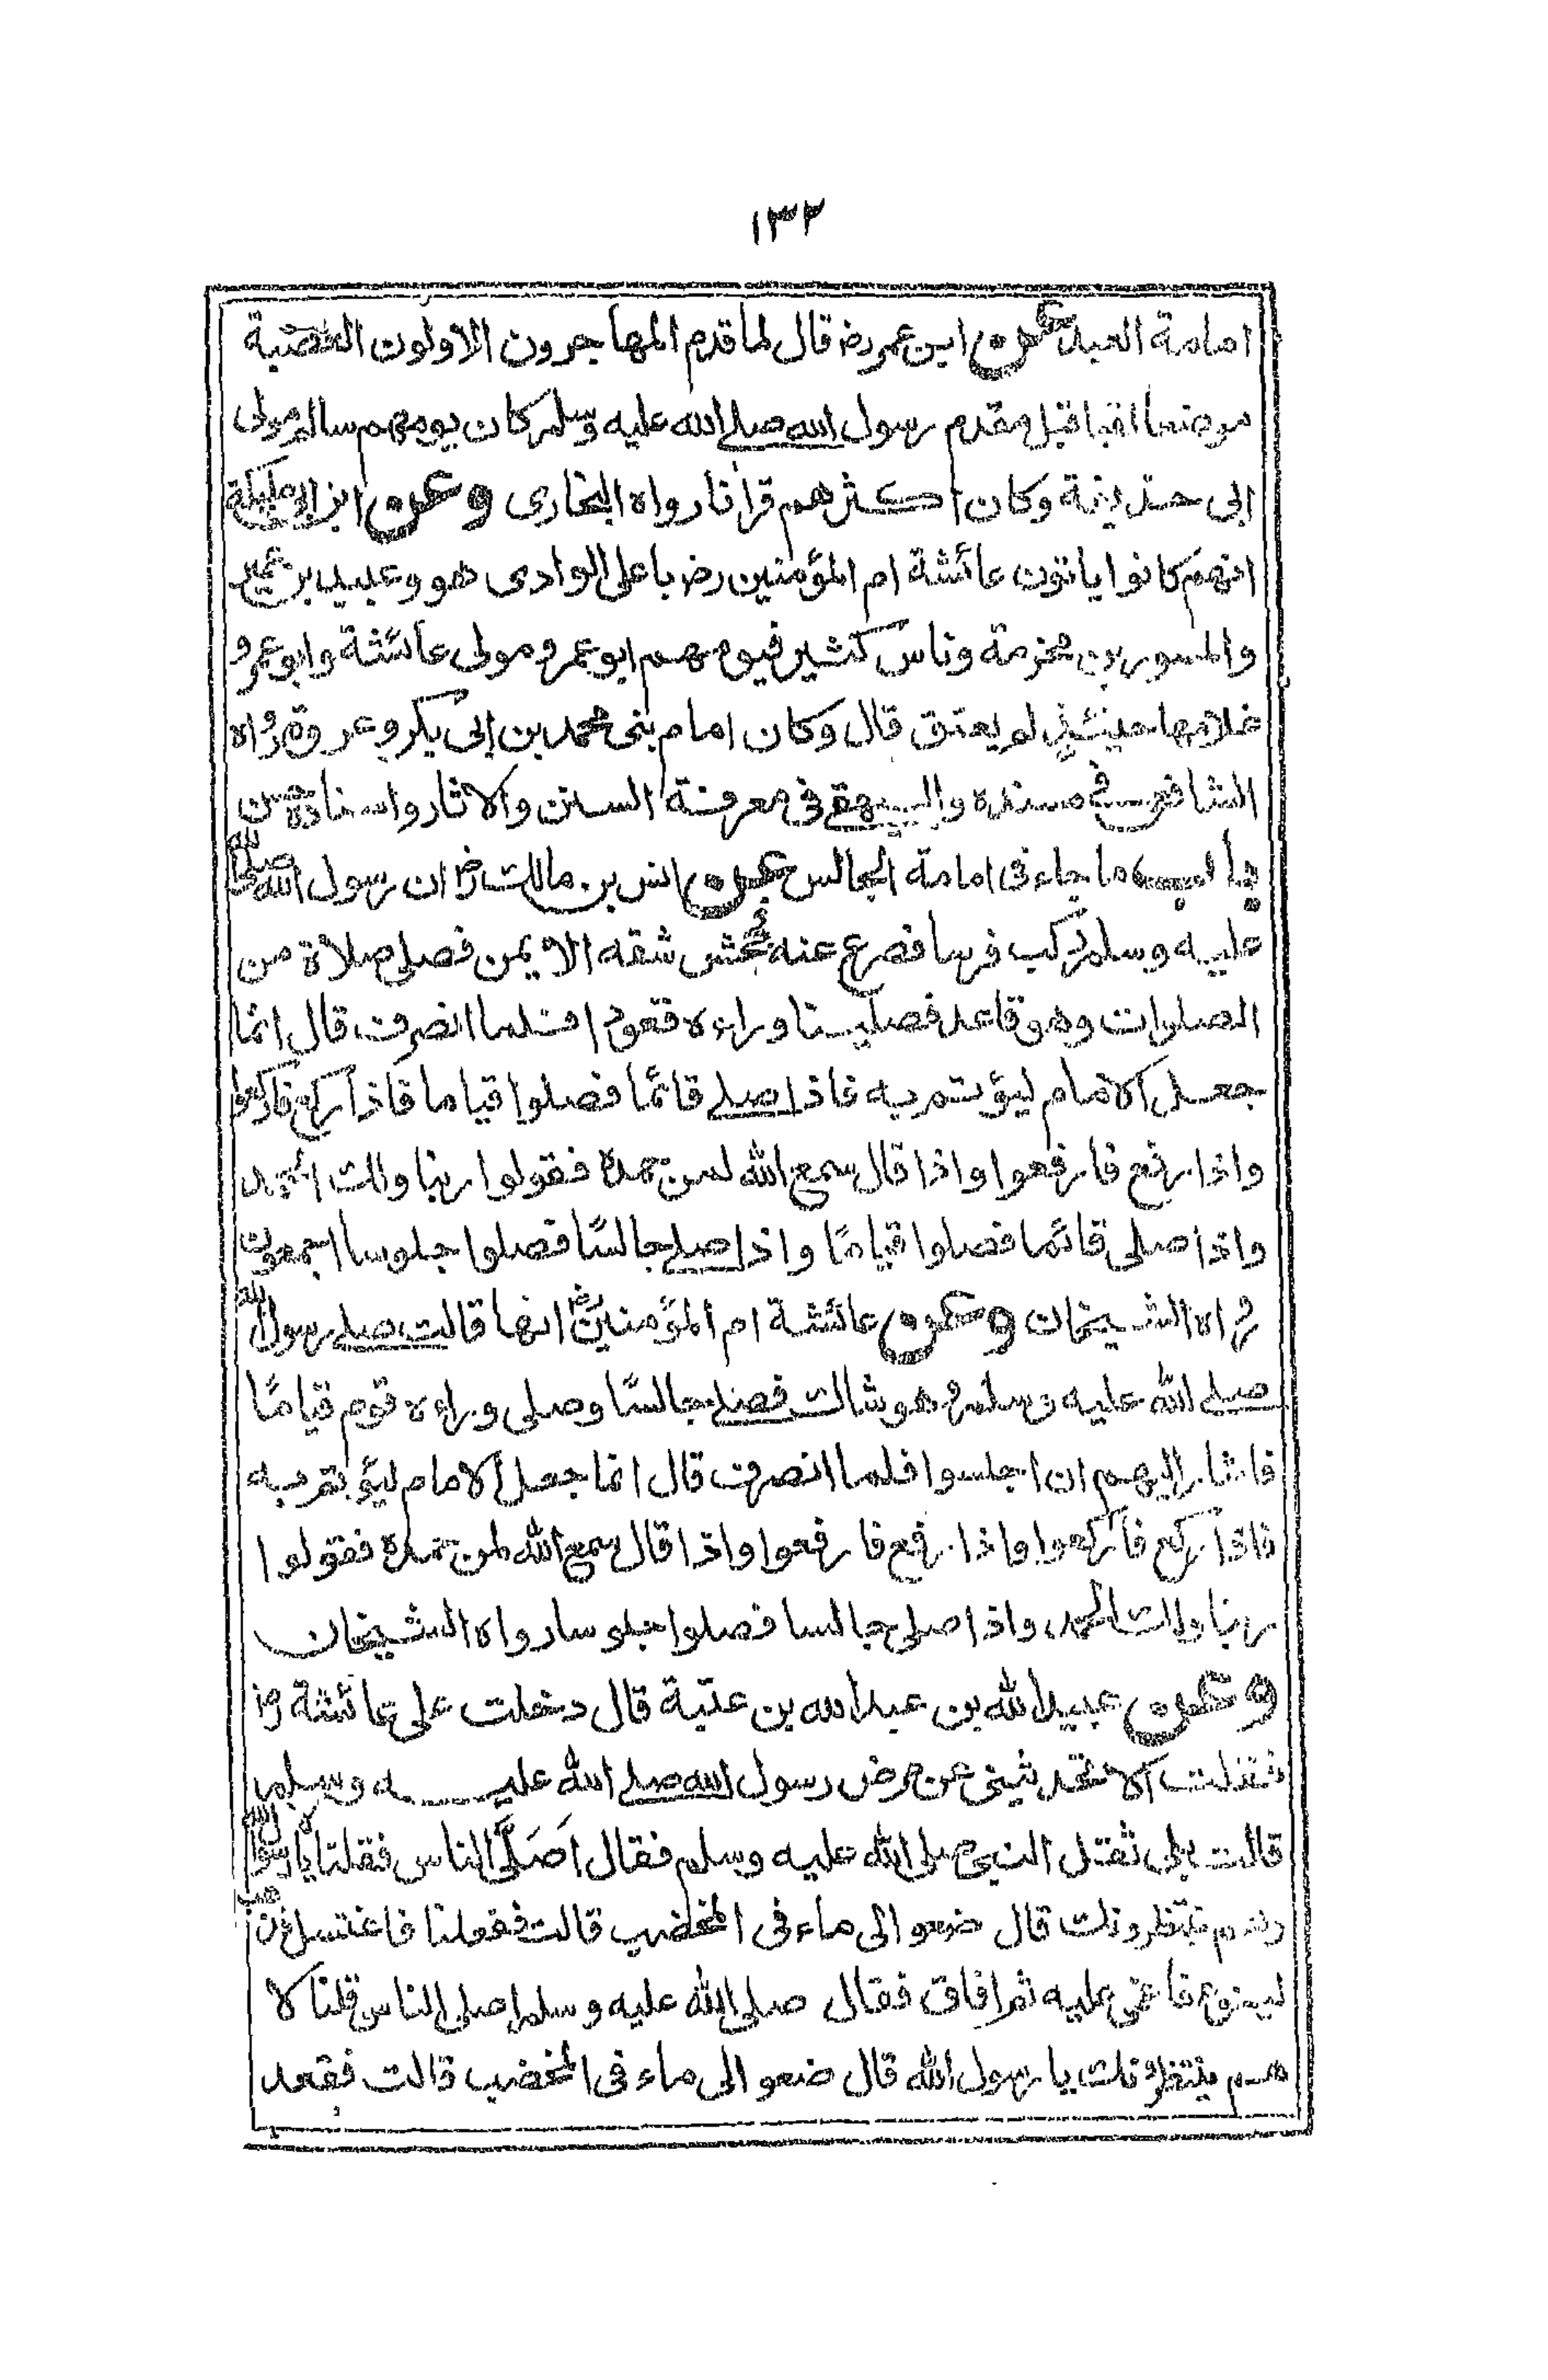 ١٣٢
امامة العبد عن ابن عمر رض قال لما قدم المهاجرون الاولون العصبة
موضعا بقبا قبل مقدم رسول الله صلى الله عليه وسلم كان يومهم سالم مولى
ابى حذيفة وكان اكثرهم قرانا رواه البخارى وعن ابن ابى مليكة
انهم كانوا ياتون عائشة ام المؤمنين رض باعلى الوادى هو وعبيد بن عمير
والمسور بن مخرمة وناس كثير فيومهم ابو عمرو مولى عائشة وابو عمرو
غلامها حينئذ لم يعتق قال وكان امام بنى محمد بن ابى بكر وعروة رواه
الشافعى فى مسنده والبيهقى فى معرفة السنن والاثار واسناده حسن
باب ما جاء فى امامة الجالس عن انس بن مالك رض ان رسول الله صلى الله
عليه وسلم ركب فرسا فصرع عنه فجحش شقه الايمن فصلى صلاة من
الصلوات وهو قاعد فصلينا وراءه قعودا فلما انصرف قال انما
جعل الامام ليؤتم به فاذا صلى قائما فصلوا قياما فاذا ركع فاركعوا
واذا رفع فارفعوا واذا قال سمع الله لمن حمده فقولوا ربنا ولك الحمد
واذا صلى قائما فصلوا قيامًا واذا صلى جالسًا فصلوا جلوسا اجمعون
رواه الشيخان وعن عائشة ام المؤمنين رض انها قالت صلى رسول الله
صلى الله عليه وسلم وهو شاك فصلى جالسًا وصلى وراءه قوم قيامًا
فاشار اليهم ان اجلسوا فلما انصرف قال انما جعل الامام ليؤتم به
فاذا ركع فاركعوا واذا رفع فارفعوا واذا قال سمع الله لمن حمده فقولوا
ربنا ولك الحمد، واذا صلى جالسا فصلوا جلوسا رواه الشيخان
وعن عبيد الله بن عبد الله بن عتبة قال دخلت على عائشة رض
فقلت الا تحدثينى عن مرض رسول الله صلى الله عليه وسلم
قالت بلى ثقل النبى صلى الله عليه وسلم فقال اَصَلَّى الناس فقلنا لا يا رسول الله
وهم ينتظرونك قال ضعوا لى ماء فى المخضب قالت ففعلنا فاغتسل فذهب
لينوء فاغمى عليه ثم افاق فقال صلى الله عليه وسلم اصلى الناس قلنا لا
هم ينتظرونك يا رسول الله قال ضعوا لى ماء فى المخضب قالت فقعد